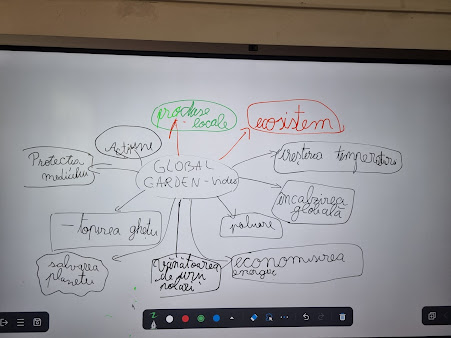 produse
locale
ecosistem
Acțiune
Protecția
mediului
GLOBAL
GARDEN - Video
creșterea temperaturii
încălzirea
globală
- topirea gheții
poluare
salvarea
planetei
vânătoarea
de urși
polari
economisirea
energiei